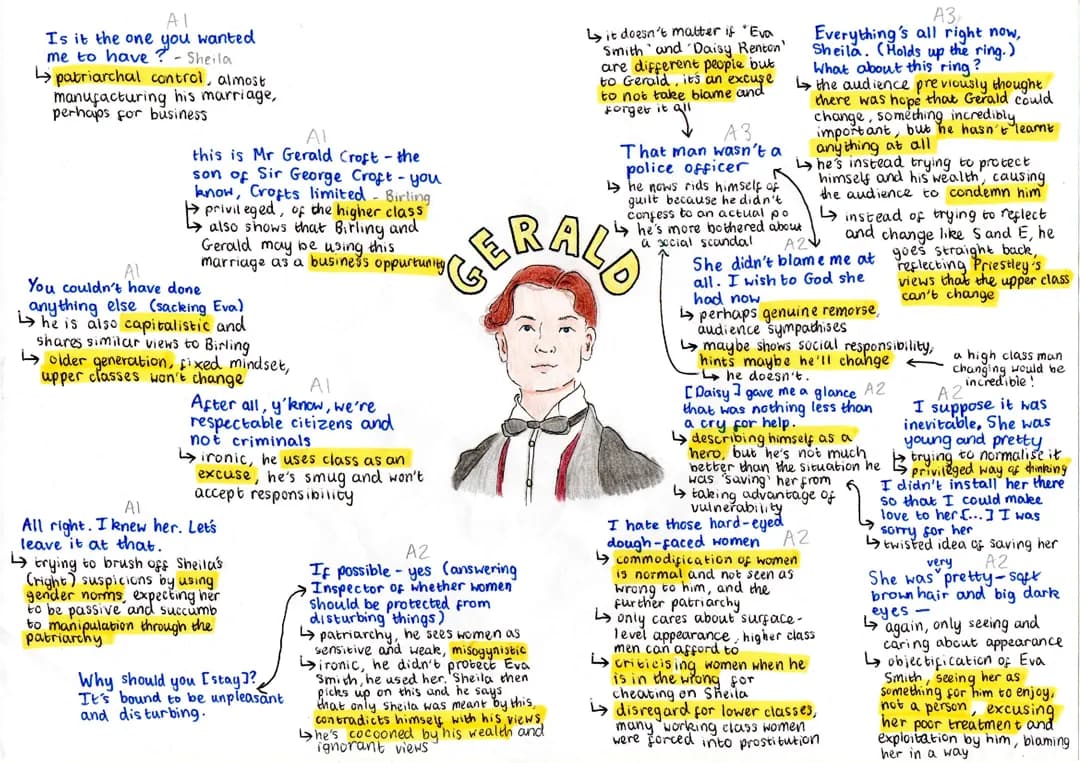 A1
Is it the one you wanted
me to have? - Sheila
↳ patriarchal control, almost
manufacturing his marriage,
perhaps for business
A1
this is Mr Gerald Croft - the
son of Sir George Croft - you
know, Crofts limited - Birling
↳ privileged, of the higher class
↳ also shows that Birling and
Gerald may be using this
marriage as a business oppurtunity
A1
You couldn't have done
anything else (sacking Eva)
↳ he is also capitalistic and
shares similar views to Birling
↳ older generation, fixed mindset,
upper classes won't change
A1
After all, y'know, we're
respectable citizens and
not criminals
↳ ironic, he uses class as an
excuse, he's smug and won't
accept responsibility
A1
All right. I knew her. Let's
leave it at that.
↳ trying to brush off Sheila's
(right) suspicions by using
gender norms, expecting her
to be passive and succumb
to manipulation through the
patriarchy
Why should you [stay]?
It's bound to be unpleasant
and disturbing.
A2
If possible - yes (answering
Inspector of whether women
should be protected from
disturbing things)
↳ patriarchy, he sees women as
sensitive and weak, misogynistic
↳ ironic, he didn't protect Eva
Smith, he used her. Sheila then
picks up on this and he says
that only Sheila was meant by this,
contradicts himself with his views
↳ he's cocooned by his wealth and
ignorant views
GERALD
↳ it doesn't matter if "Eva
Smith' and 'Daisy Renton'
are different people but
to Gerald, it's an excuse
to not take blame and
forget it all
A3
That man wasn't a
police officer
↳ he nows rids himself of
guilt because he didn't
confess to an actual po
↳ he's more bothered about
a social scandal
A2
She didn't blame me at
all. I wish to God she
had now
↳ perhaps genuine remorse,
audience sympathises
↳ maybe shows social responsibility,
hints maybe he'll change
↳ he doesn't.
a high class man
changing would be
incredible!
[Daisy] gave me a glance A2
that was nothing less than
a cry for help.
↳ describing himself as a
hero, but he's not much
better than the situation he
was 'saving' her from
↳ taking advantage of
vulnerability
I hate those hard-eyed
dough-faced women A2
↳ commodification of women
is normal and not seen as
wrong to him, and the
further patriarchy
↳ only cares about surface-
level appearance, higher class
men can afford to
↳ criticising women when he
is in the wrong for
cheating on Sheila
↳ disregard for lower classes,
many working class women
were forced into prostitution
A3
Everything's all right now,
Sheila. (Holds up the ring.)
What about this ring?
↳ the audience previously thought
there was hope that Gerald could
change, something incredibly
important, but he hasn't learnt
anything at all
↳ he's instead trying to protect
himself and his wealth, causing
the audience to condemn him
↳ instead of trying to reflect
and change like S and E, he
goes straight back,
reflecting Priestley's
views that the upper class
can't change
A2
I suppose it was
inevitable. She was
young and pretty
↳ trying to normalise it
↳ privileged way of thinking
I didn't install her there
so that I could make
love to her [...] I was
sorry for her
↳ twisted idea of saving her
A2
She was very pretty - soft
brown hair and big dark
eyes —
↳ again, only seeing and
caring about appearance
↳ objectification of Eva
Smith, seeing her as
something for him to enjoy,
not a person, excusing
her poor treatment and
exploitation by him, blaming
her in a way